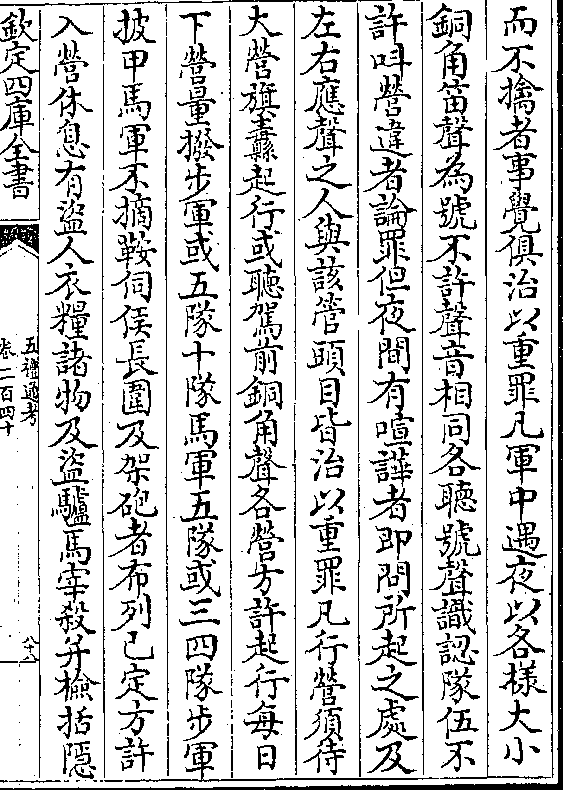 而不擒者事覺俱治以重罪凡軍中遇夜以各様大小
銅角笛聲為號不許聲音相同各聽號聲識認隊伍不
許呌營違者論罪但夜間有喧譁者即問所起之處及
左右應聲之人與該管頭目皆治以重罪凡行營須待
大營旗纛起行或聽駕前銅角聲各營方許起行每日
下營量撥步軍或五隊十隊馬軍五隊或三四隊步軍
披甲馬軍不摘鞍伺候長圍及架砲者布列已定方許
入營休息有盜人衣糧諸物及盜驢馬宰殺并檢括隱
欽定四庫全書
五禮通考
卷二百四十
八十八